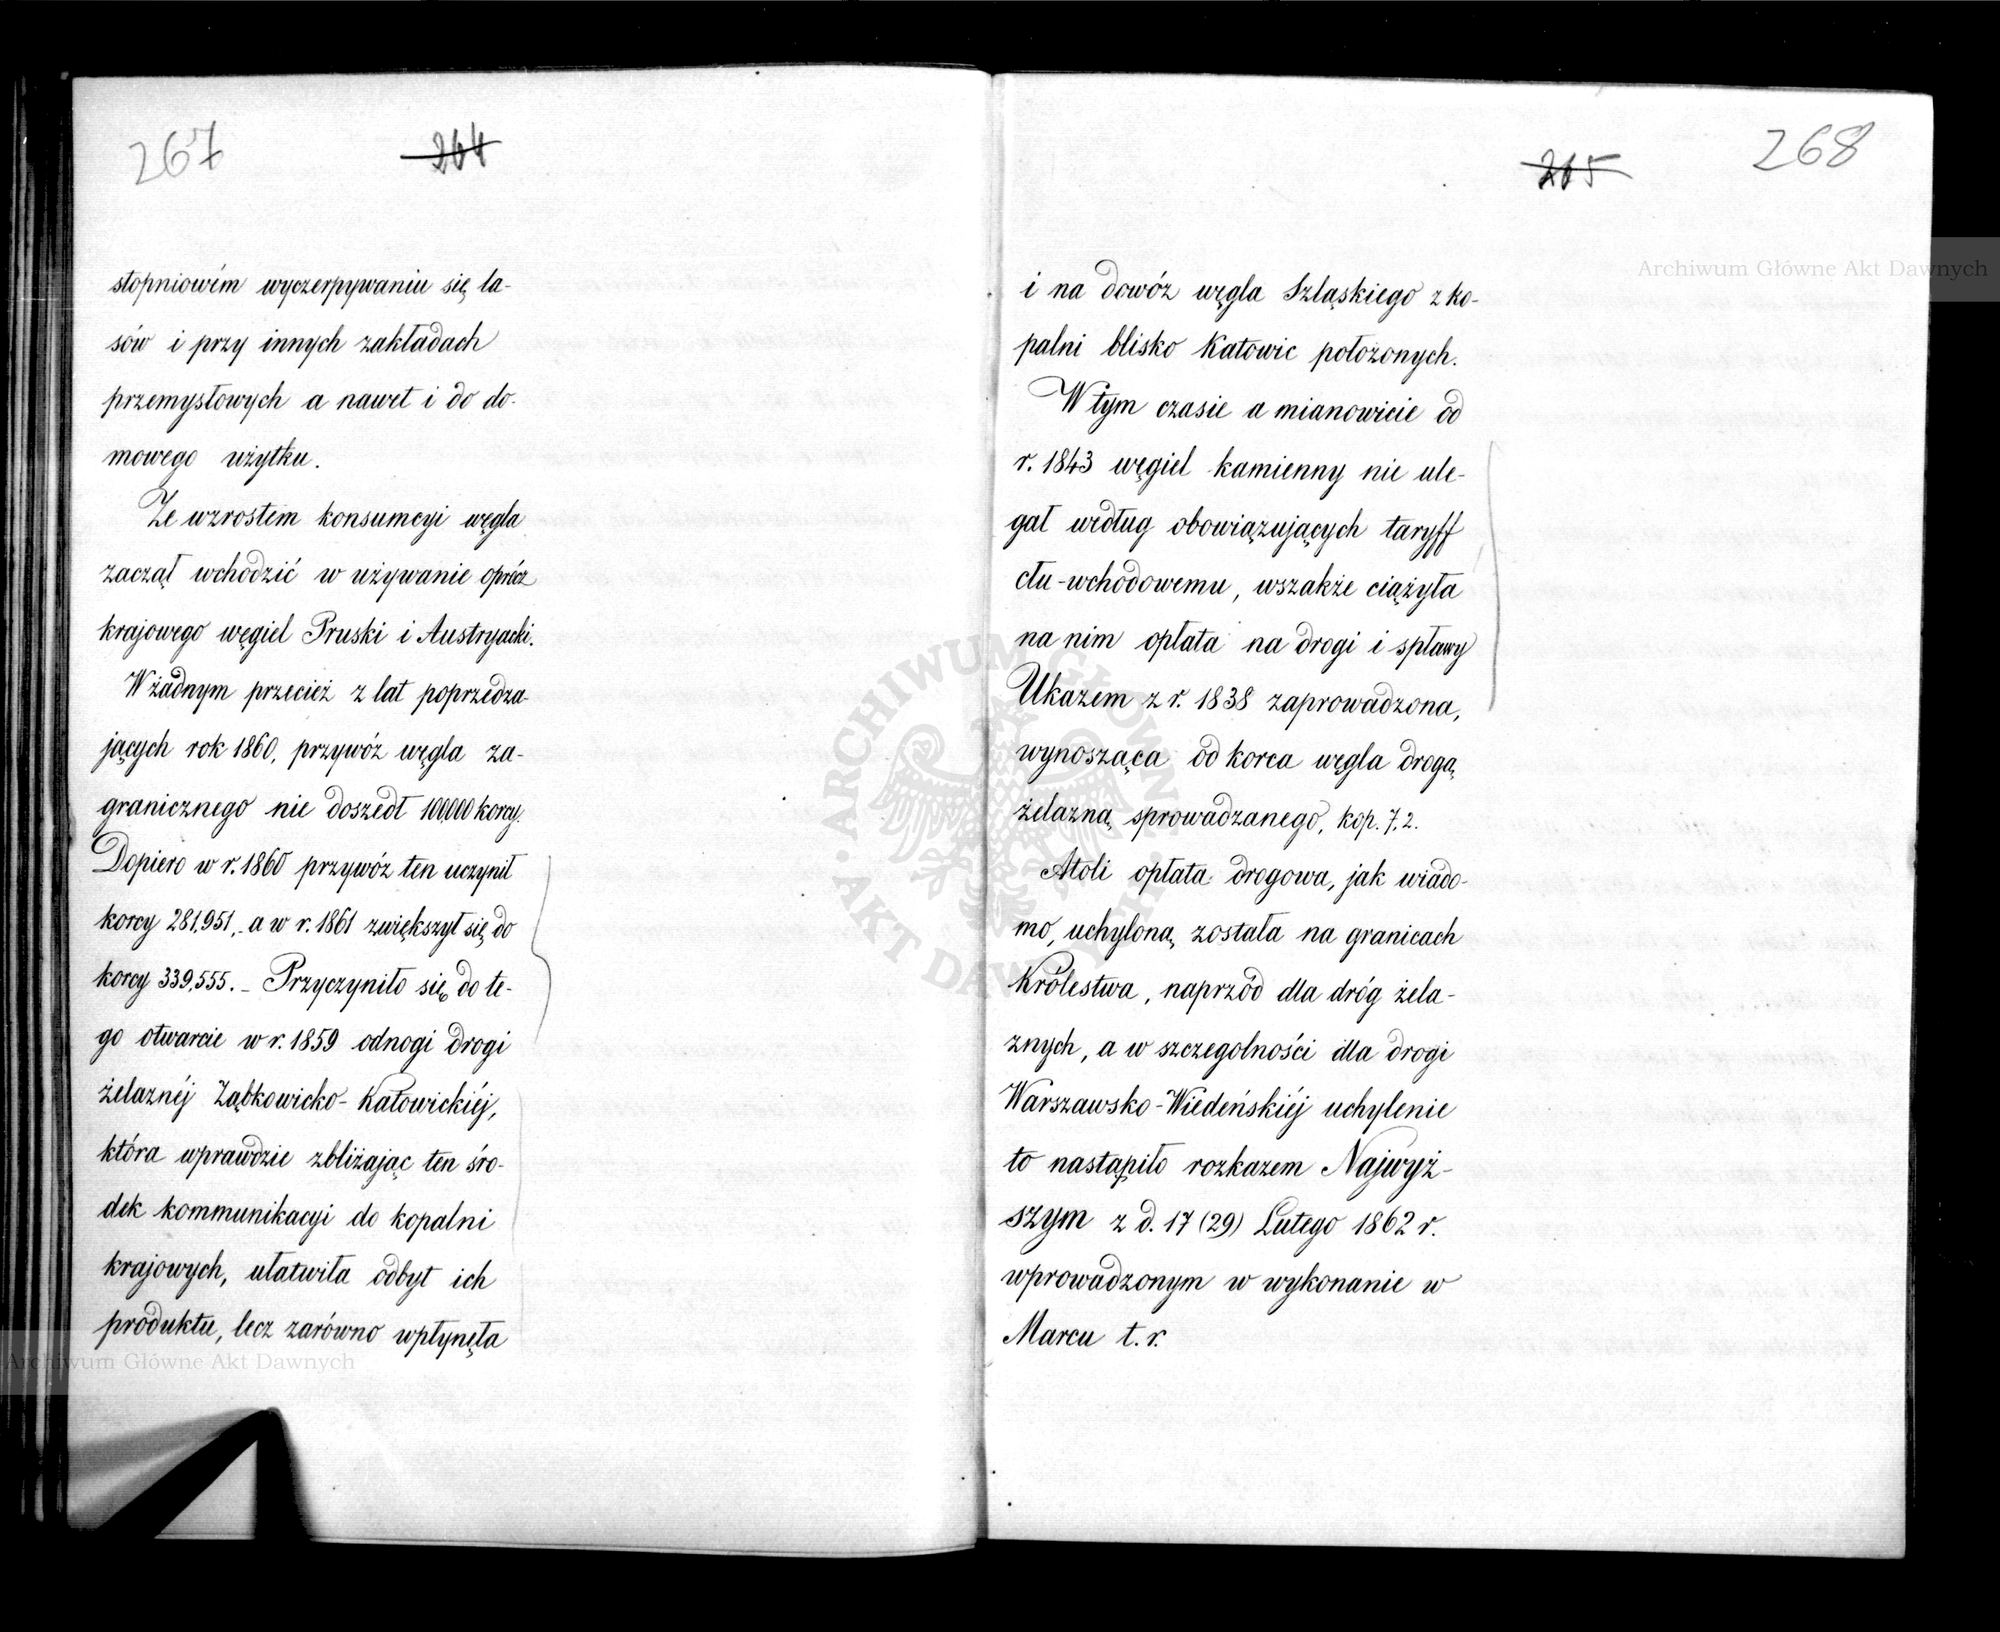 267
264
stopniowém wyczerpywaniu się la-
sów i przy innych zakładach
przemysłowych a nawet i do do-
mowego użytku.
Ze wzrostem konsumcyi węgla
zaczął wchodzić w używanie oprócz
krajowego węgiel Pruski i Austryacki.
W żadnym przecież z lat poprzedza-
jących rok 1860, przywóz węgla za-
granicznego nie doszedł 100,000 korcy.
Dopiero w r. 1860 przywóz ten uczynił
korcy 281,951,- a w r. 1861 zwiększył się do
korcy 339,555.- Przyczyniło się do te-
go otwarcie w r. 1859 odnogi drogi
żelaznéj Ząbkowicko-Katowickiéj,
która wprawdzie zbliżając ten śro-
dek kommunikacyi do kopalni
krajowych, ułatwiła odbyt ich
produktu, lecz zarówno wpłynęła
268
265
i na dowóz węgla Szląskiego z ko-
palni blisko Katowic położonych.
W tym czasie a mianowicie od
r. 1843 węgiel kamienny nie ule-
gał według obowiązujących taryff
cłu-wchodowemu, wszakże ciążyła
na nim opłata na drogi i spławy
Ukazem z r. 1838 zaprowadzona,
wynosząca od korca węgla drogą
żelazną sprowadzanego, kop. 7,2.
Atoli opłata drogowa, jak wiado-
mo, uchyloną została na granicach
Królestwa, naprzód dla dróg żela-
znych, a w szczegolności dla drogi
Warszawsko-Wiedeńskiéj uchylenie
to nastąpiło rozkazem Najwyż-
szym z d. 17 (29) Lutego 1862 r.
wprowadzonym w wykonanie w
Marcu t. r.
Archiwum Główne Akt Dawnych
Archiwum Główne Akt Dawnych
ARCHIWUM GŁÓWNE AKT DAWNYCH